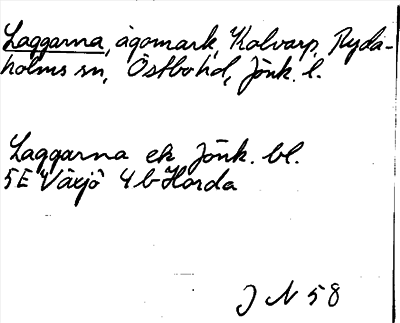 Laggarna, ägomark, Kolvarp, Ryda-
holms sn, Östbo hd, Jönk. l.
Laggarna ek Jönk. bl.
5E Växjö 4b Horda
J N 58